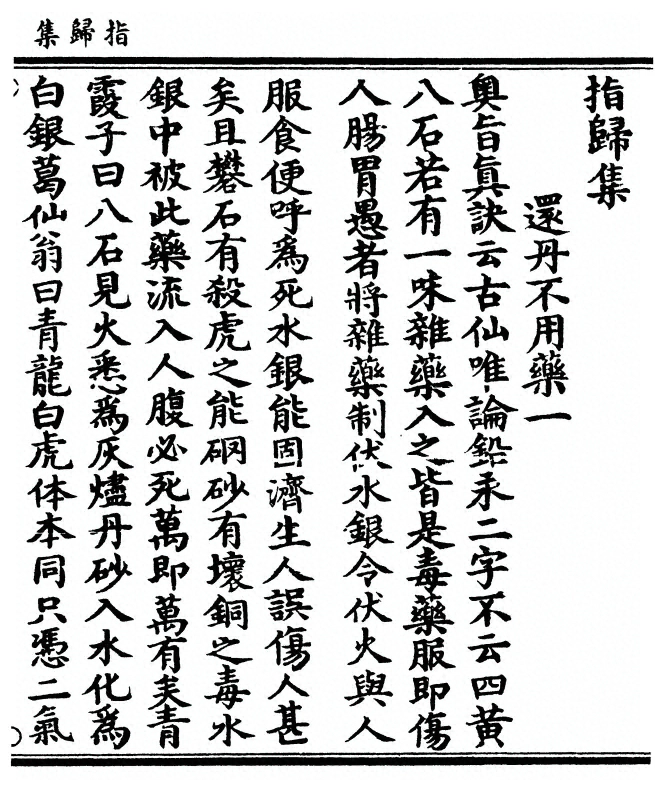 指歸集
指歸集
還丹不用藥一
奧旨眞訣云古仙唯論鉛汞二字不云四黃
八石若有一味雜藥入之皆是毒藥服即傷
人腸胃愚者將雜藥制伏水銀令伏火與人
服食便呼爲死水銀能固濟生人誤傷人甚
矣且礬石有殺虎之能硇砂有壞銅之毒水
銀中被此藥流入人腹必死萬即萬有矣青
霞子曰八石見火悉爲灰燼丹砂入水化爲
白銀葛仙翁曰青龍白虎体本同只憑二氣